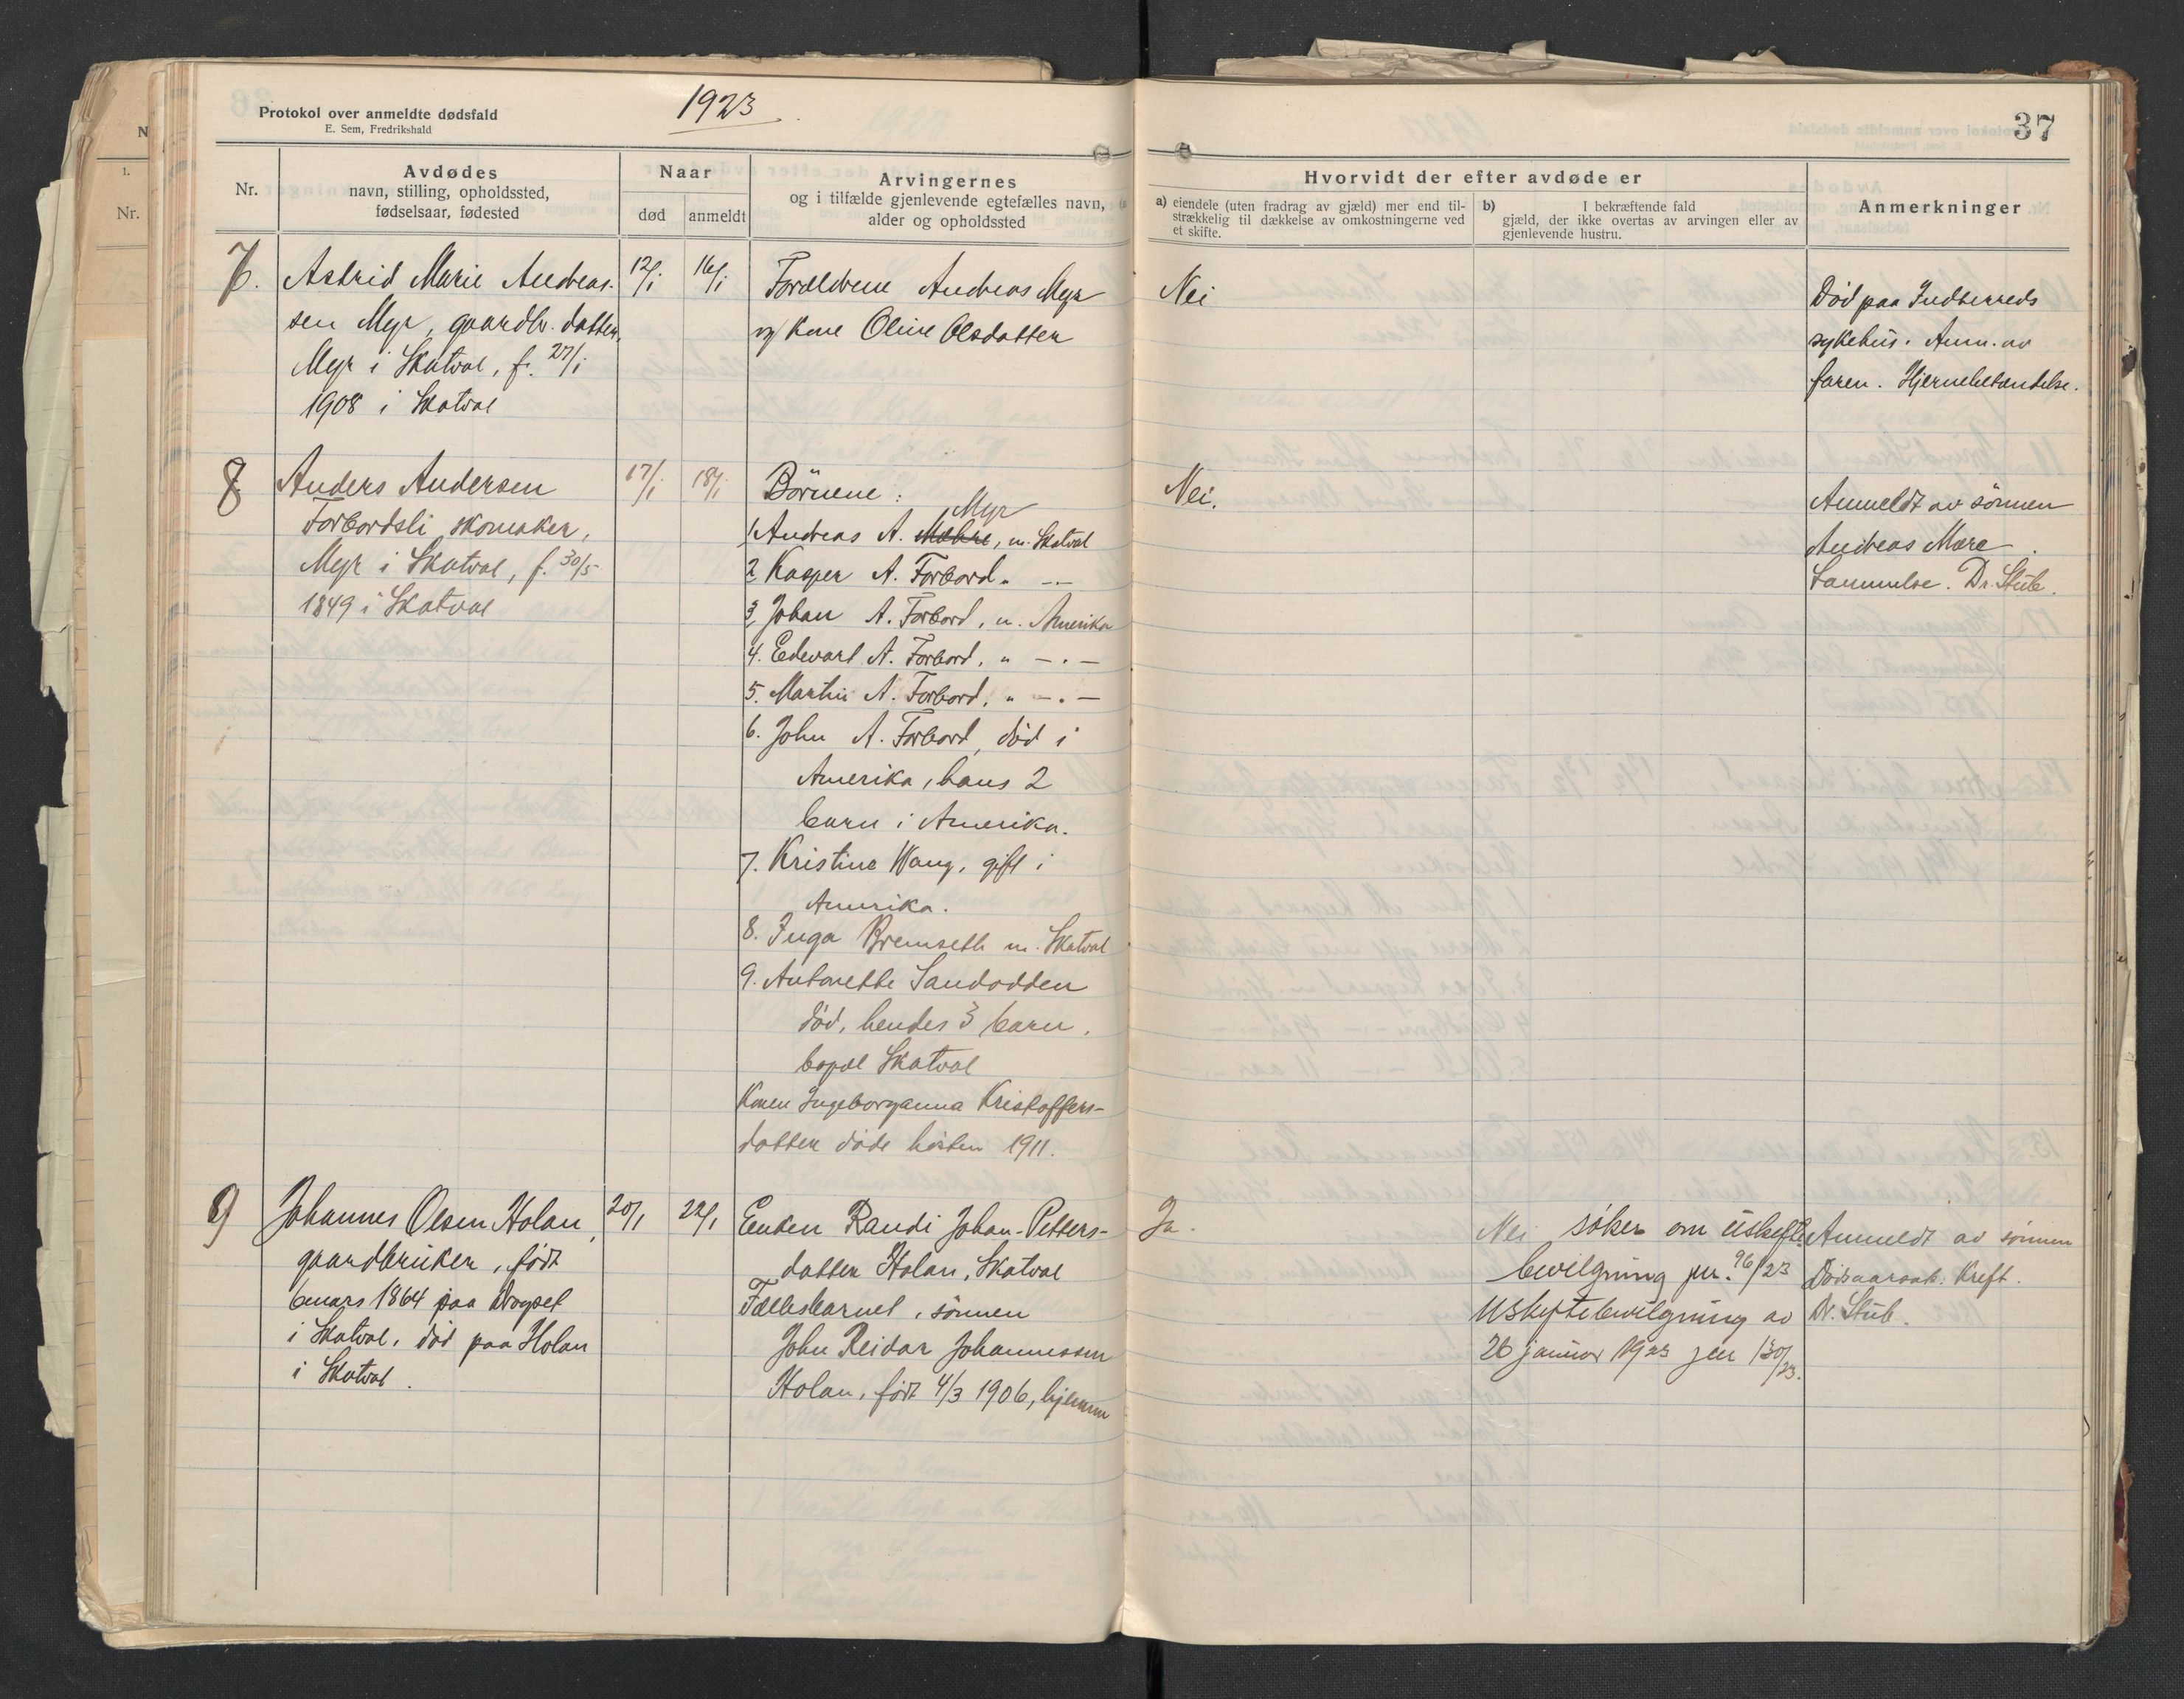 Protokol over anmeldte dødsfald
E. Sem, Fredrikshald
1923
37
Nr.
Avdødes
navn, stilling, opholdssted,
fødselsaar, fødested
Naar
død
anmeldt
Arvingernes
og i tilfælde gjenlevende egtefælles navn,
alder og opholdssted
Hvorvidt der efter avdøde er
a) eiendele (uten fradrag av gjæld) mer end til-
strækkelig til dækkelse av omkostningerne ved
et skifte.
b) I bekræftende fald
gjæld, der ikke overtas av arvingen eller av
gjenlevende hustru.
Anmerkninger
7.
Astrid Marie Andreas-
sen Myr, gaardbr. datter,
Myr i Skatval, f. 27/1
1908 i Skatval
12/1
16/1
Forældrene Andreas Myr
og kone Oline Olsdatter
Nei
Död paa Indherreds
sykehus. Anm. av
faren. Hjernebetændelse.
8
Anders Andersen
Forbordsli skomaker,
Myr i Skatval, f. 30/5
1849 i Skatval
17/1
18/1
Börnene:
Myr
1 Andreas A. , m. Skatval
2 Kasper A. Forbord " --
3, Johan A. Forbord, m. Amerika
4. Edevart A. Forbord, " - . -
5. Martin A. Forbord, " - . -
6. John A. Forbord, död i
Amerika, hans 2
barn i Amerika.
7. Kristine Wang, gift i
Amerika.
8. Inga Bremseth m. Skatval
9. Antonette Sandodden
död, hendes 3 barn,
bopæl Skatval
Konen Ingeborganna Kristoffers-
datter döde hösten 1911.
Nei.
Anmeldt av sönnen
Andreas Mære.
Lammelse. Dr. Stub.
9
Johannes Olsen Holan,
gaardbruker, födt
6 mars 1864 paa
i Skatval, död paa Holan
i Skatval.
20/1
22/1
Enken Randi Johan-Petters-
datter Holan, Skatval
Fællesbarnet, sönnen
John Reidar Johannessen
Holan, födt 4/3 1906, hjemme
Ja.
Nei søker om uskifte-
bevilgning jnr. 96/23
Uskiftebevilgning av
26 januar 1923 jnr 130/23.
Anmeldt av sönnen
Dödsaarsak: Kreft.
Dr. Stub.